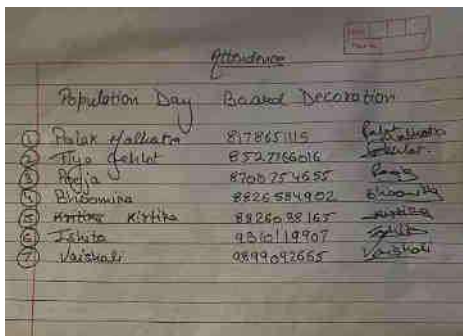 Attendence
Population Day Board Decoration
① Palak Malhotra 8178651115 Palak Malhotra
② Jiya Gehlot 8527766016 Gehlot.
③ Pooja 8700754655 Pooja
④ Bhoomika 8826584902 Bhoomika
⑤ Kirtika 8826098165 Kirtika
⑥ Ishita 9310119907 Ishita
⑦ Vaishali 9899092655 Vaishali